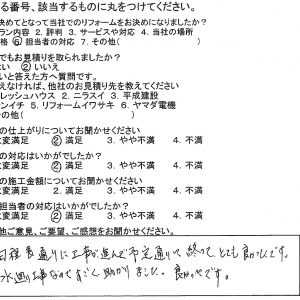 る番号、該当するものに丸をつけてください。
決めてとなって当社でのリフォームをお決めになりましたか?
ラン内容 2. 評判 3. サービスや対応 4. 当社の場所
格 ⑥ 担当者の対応 7. その他(
でもお見積りを取りましたか?
い ② いいえ
いと答えた方へ質問です。
えなければ、他社のお見積り先を教えてください
レッシュハウス 2. ニラスイ 3. 平成建設
ンイチ 5. リフォームイワサキ 6. ヤマダ電機
の他(
の仕上がりについてお聞かせください
変満足 ② 満足 3. やや不満 4. 不満
の対応はいかがでしたか?
変満足 ② 満足 3. やや不満 4. 不満
の施工金額についてお聞かせください
変満足 2. 満足 3. やや不満 4. 不満
担当者の対応はいかがでしたか?
変満足 ② 満足 3. やや不満 4. 不満
他ご意見、ご要望、ご感想をお聞かせください
日程表通りに工事が進んで予定通りで終ってとても良かったです。
水廻り工事なのですごく助かりました。良かったです。